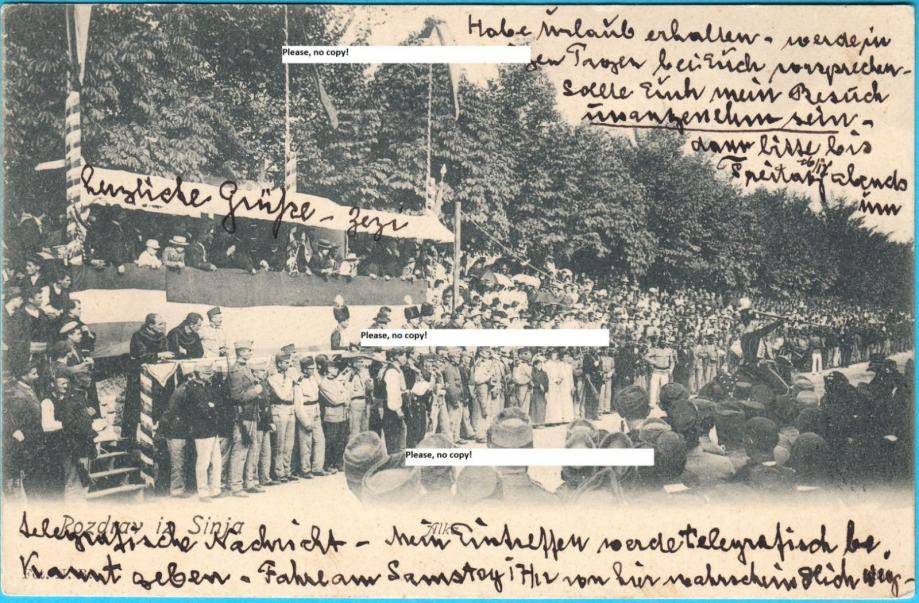 Habe Urlaub erhalten - werde in
Please, no copy!
bei Euch vorsprechen -
Sollte Euch mein Besuch
unangenehm sein -
dann bitte bis
Freitag 16/12 abends
um
herzliche Grüße - Zezi
Please, no copy!
Please, no copy!
Pozdrav iz Sinja
Alka
telegrafische Nachricht - Mein Eintreffen werde telegrafisch be-
kannt geben - Fahre am Samstag 17/12 von hier wahrscheinlich weg -